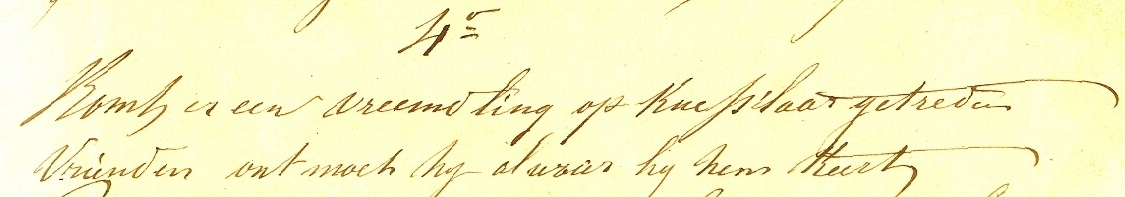 4º
Komt er een vreemdeling op Knesselaar getreden
Vrienden ont moet hy al waar hy hem keert